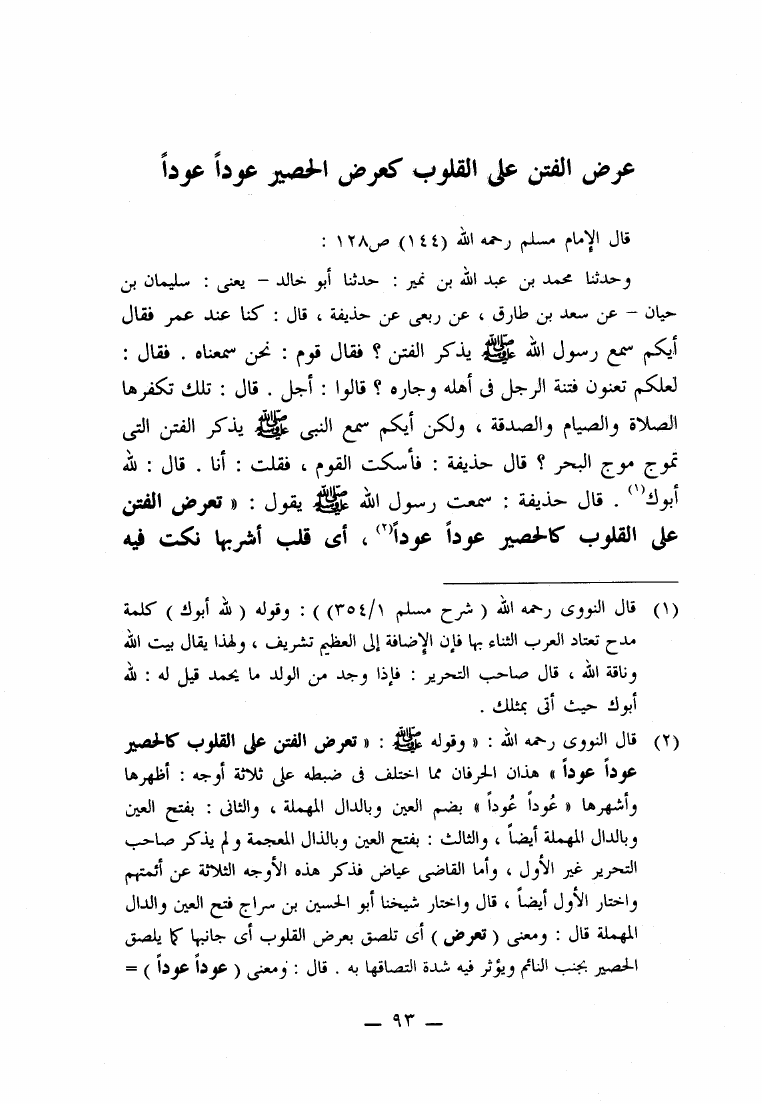 عرض الفتن على القلوب كعرض الحصير عوداً عوداً
قال الإمام مسلم رحمه الله (١٤٤) ص١٢٨ :
وحدثنا محمد بن عبد الله بن نمير : حدثنا أبو خالد – يعنى : سليمان بن
حيان – عن سعد بن طارق ، عن ربعى عن حذيفة ، قال : كنا عند عمر فقال
أيكم سمع رسول الله ﷺ يذكر الفتن ؟ فقال قوم : نحن سمعناه . فقال :
لعلكم تعنون فتنة الرجل فى أهله وجاره ؟ قالوا : أجل . قال : تلك تكفرها
الصلاة والصيام والصدقة ، ولكن أيكم سمع النبى ﷺ يذكر الفتن التى
تموج موج البحر ؟ قال حذيفة : فأسكت القوم ، فقلت : أنا . قال : لله
أبوك(١) . قال حذيفة : سمعت رسول الله ﷺ يقول : « تعرض الفتن
على القلوب كالحصير عوداً عوداً(٢) ، أى قلب أشربها نكت فيه
(١) قال النووى رحمه الله ( شرح مسلم ٣٥٤/١) ) : وقوله ( لله أبوك ) كلمة
مدح تعتاد العرب الثناء بها فإن الإضافة إلى العظيم تشريف ، ولهذا يقال بيت الله
وناقة الله ، قال صاحب التحرير : فإذا وجد من الولد ما يحمد قيل له : لله
أبوك حيث أتى بمثلك .
(٢) قال النووى رحمه الله : « وقوله ﷺ : « تعرض الفتن على القلوب كالحصير
عوداً عوداً » هذان الحرفان مما اختلف فى ضبطه على ثلاثة أوجه : أظهرها
وأشهرها « عُوداً عُوداً » بضم العين وبالدال المهملة ، والثانى : بفتح العين
وبالدال المهملة أيضاً ، والثالث : بفتح العين وبالذال المعجمة ولم يذكر صاحب
التحرير غير الأول ، وأما القاضى عياض فذكر هذه الأوجه الثلاثة عن أئمتهم
واختار الأول أيضاً ، قال واختار شيخنا أبو الحسين بن سراج فتح العين والدال
المهملة قال : ومعنى ( تعرض ) أى تلصق بعرض القلوب أى جانبها كما يلصق
الحصير بجنب النائم ويؤثر فيه شدة التصاقها به . قال : ومعنى ( عوداً عوداً ) =
— ٩٣ —